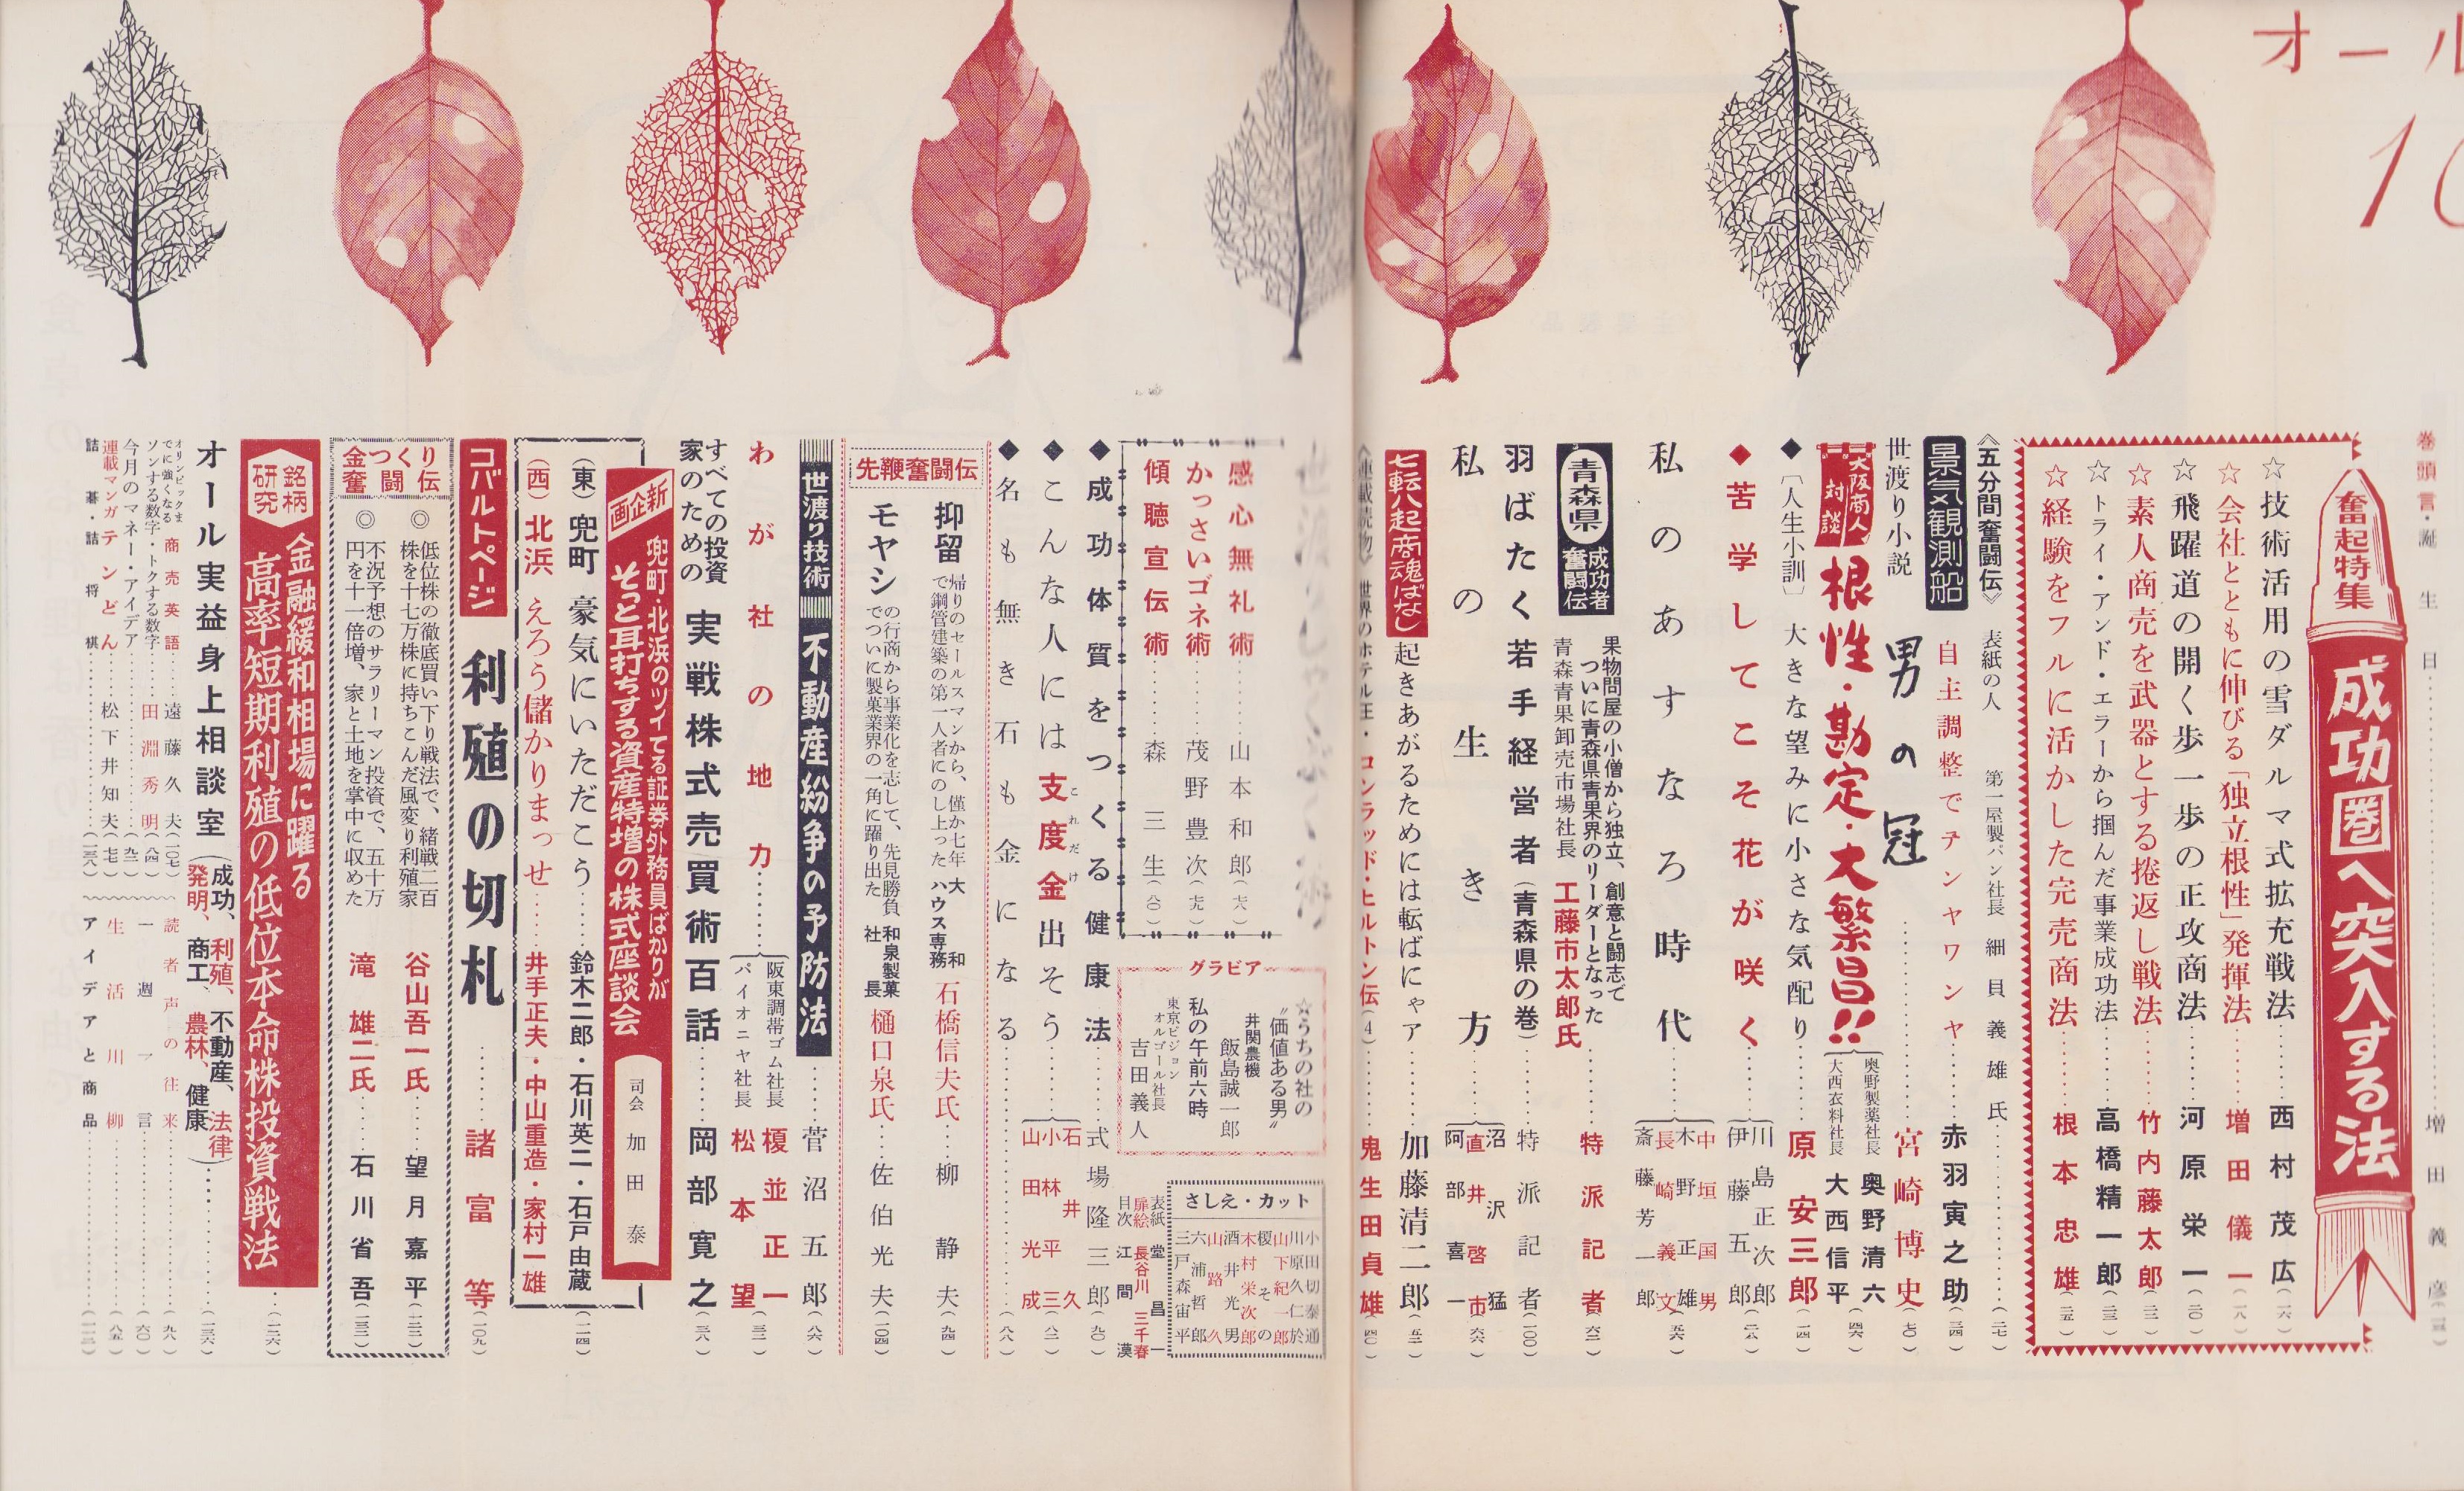 オール
10
巻頭言・誕生日………増田義彦
奮起特集
成功圏へ突入する法
☆技術活用の雪ダルマ式拡充戦法………西村茂広(一六)
☆会社とともに伸びる「独立根性」発揮法………増田儀一(一八)
☆飛躍道の開く歩一歩の正攻商法………河原栄一(二〇)
☆素人商売を武器とする捲返し戦法………竹内藤太郎(二二)
☆トライ・アンド・エラーから掴んだ事業成功法………高橋精一郎(二三)
☆経験をフルに活かした完売商法………根本忠雄(二五)
《五分間奮闘伝》 表紙の人 第一屋製パン社長 細貝義雄氏………(二七)
景気観測船 自主調整でテンヤワンヤ………赤羽寅之助(三四)
世渡り小説 男の冠………宮崎博史(七〇)
大阪商人対談 根性・勘定・大繁昌!!
奥野製薬社長 奥野清六
大西衣料社長 大西信平
(四六)
◆〔人生小訓〕大きな望みに小さな気配り………原安三郎(一四)
◆苦学してこそ花が咲く
川島正次郎
伊藤五郎
(二八)
私のあすなろ時代
中垣国男
木野正雄
長崎義文
斎藤芳一郎
(五六)
青森県 成功者奮闘伝
果物問屋の小僧から独立、創意と闘志で
ついに青森県青果界のリーダーとなった
青森青果卸売市場社長 工藤市太郎氏………特派記者(六二)
羽ばたく若手経営者(青森県の巻)………特派記者(一〇〇)
私の生き方
沼沢猛
直井啓市
阿部喜一
(六六)
七転八起商魂ばなし 起きあがるためには転ばにゃア………加藤清二郎(五二)
《連載読物》世界のホテル王・コンラッド・ヒルトン伝(4)………鬼生田貞雄(四〇)
感心無礼術………山本和郎(七六)
かっさいゴネ術………茂野豊次(七九)
傾聴宣伝術………森三生(八〇)
グラビア
☆うちの社の
"価値ある男"
井関農機
飯島誠一郎
私の午前六時
東京ビジョン
オルゴール社長
吉田義人
さしえ・カット
小田切泰通
川原久仁於
山下紀一郎
榎そのの
木村栄次郎
酒井光男
山路久
六浦哲郎
三戸森宙平
表紙 堂昌一
扉絵 長谷川三千春
目次 江間漠
◆成功体質をつくる健康法………式場隆三郎(九〇)
◆こんな人には支度金出そう
これだけ
石井久
小林平三
山田光成
(八二)
◆名も無き石も金になる………(八八)
先鞭奮闘伝
抑留帰りのセールスマンから、僅か七年で鋼管建築の第一人者にのし上った 大和ハウス専務 石橋信夫氏……柳静夫(九四)
モヤシの行商から事業化を志して、先見勝負でついに製菓業界の一角に躍り出た 和泉製菓社長 樋口泉氏……佐伯光夫(一〇四)
世渡り技術 不動産紛争の予防法………菅沼五郎(八六)
わが社の地力
阪東調帯ゴム社長 榎並正一
パイオニヤ社長 松本望
(三二)
すべての投資家のための 実戦株式売買術百話………岡部寛之(三八)
新企画
兜町・北浜のツイてる証券外務員ばかりが
そっと耳打ちする資産特増の株式座談会
司会 加田泰
(東)兜町 豪気にいただこう……鈴木二郎・石川英二・石戸由蔵
(西)北浜 えろう儲かりまっせ……井手正夫・中山重造・家村一雄
(一一四)
コバルトページ 利殖の切札………諸富等(一〇九)
金つくり奮闘伝
◎低位株の徹底買い下り戦法で、緒戦二百株を十七万株に持ちこんだ風変り利殖家 谷山吾一氏……望月嘉平(一二二)
◎不況予想のサラリーマン投資で、五十万円を十一倍増、家と土地を掌中に収めた 滝雄二氏……石川省吾(一三二)
銘柄研究
金融緩和相場に躍る
高率短期利殖の低位本命株投資戦法………(一二六)
オール実益身上相談室(成功、利殖、不動産、法律 発明、商工、農林、健康)………(一三六)
オリンピックまでに強くなる 商売英語………遠藤久夫(一〇七)
ソンする数字・トクする数字………田淵秀明(八四)
今月のマネー・アイデア………(九二)
連載マンガ テンどん………松下井知夫(七七)
詰碁・詰将棋………(一三八)
読者声の往来………(九八)
一週一言………(六〇)
生活川柳………(八五)
アイデアと商品………(一一二)